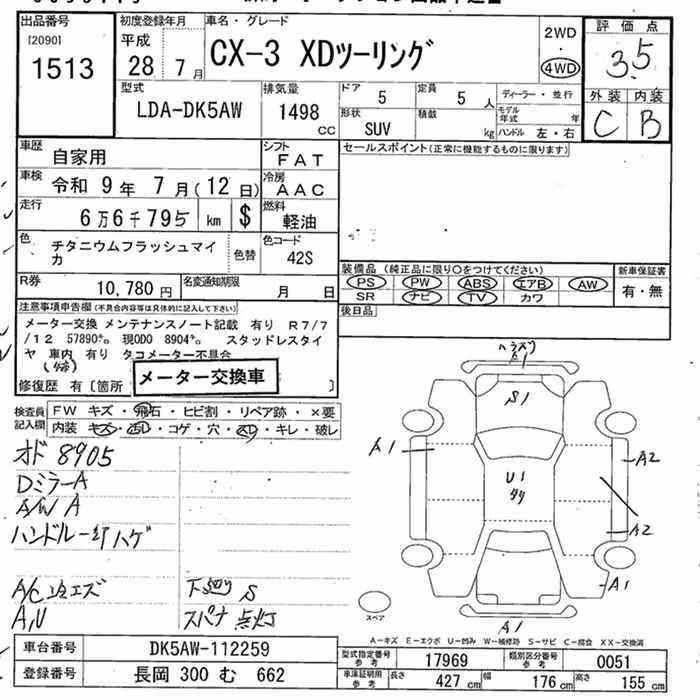 出品番号
[2090]
1513
初度登録年月
平成
28 7月
車名・グレード
CX-3 XDツーリング
2WD
・
4WD
評価点
3.5
外装 内装
C B
型式
LDA-DK5AW
排気量
1498
CC
ドア
5
定員
5 人
形状
SUV
積載
kg
ディーラー・並行
モデル年式 年
ハンドル 左・右
車歴
自家用
シフト
FAT
車検
令和 9年 7月(12日)
冷房
AAC
走行
6万6千795 km $
燃料
軽油
色
チタニウムフラッシュマイカ
色替
色コード
42S
R券
10,780円
名変通知期限
月 日
セールスポイント(正常に機能するものに限ります)
装備品 (純正品に限り○をつけてください)
PS PW ABS エアB AW
SR ナビ TV カワ
新車保証書
有・無
後日品
注意事項申告欄(不具合内容等は具体的に記入して下さい)
メーター交換 メンテナンスノート記載 有り R7/7
/12 57890㌔ 現ODO 8904㌔ スタッドレスタイ
ヤ 車内 有り タコメーター不具合
修復歴 有[箇所 ]
メーター交換車
検査員記入欄
FW キズ・飛石・ヒビ割・リペア跡・×要
内装 キズ・汚レ・コゲ・穴・スレ・キレ・破レ
オド 8905
DミラーA
A/W A
ハンドル一部ハゲ
A/C
A,U
下廻り S
スパナ点灯
A1
S1
A1
U1
A2
A2
A1
A1
スペア
A-キズ E-エクボ U-凹み W-補修跡 S-サビ C-腐食 XX-交換済
車台番号
DK5AW-112259
登録番号
長岡 300 む 662
型式指定番号
参考
17969
類別区分番号
参考
0051
車庫証明用
参考
長さ 427 cm
幅 176 cm
高さ 155 cm